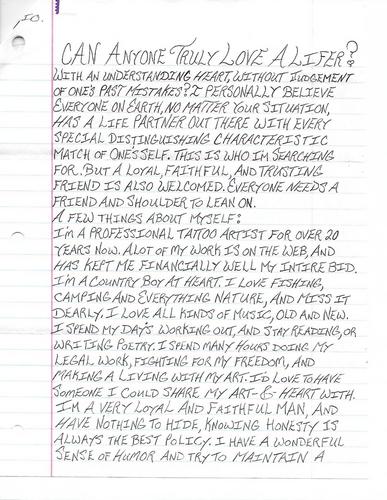 10.
CAN ANYONE TRULY LOVE A LIFER?
WITH AN UNDERSTANDING HEART, WITHOUT JUDGEMENT
OF ONE'S PAST MISTAKES? I PERSONALLY BELIEVE
EVERYONE ON EARTH, NO MATTER YOUR SITUATION,
HAS A LIFE PARTNER OUT THERE WITH EVERY
SPECIAL DISTINGUISHING CHARACTERISTIC
MATCH OF ONE'S SELF. THIS IS WHO IM SEARCHING
FOR. BUT A LOYAL, FAITHFUL, AND TRUSTING
FRIEND IS ALSO WELCOMED. EVERYONE NEEDS A
FRIEND AND SHOULDER TO LEAN ON.
A FEW THINGS ABOUT MYSELF:
I'M A PROFESSIONAL TATTOO ARTIST FOR OVER 20
YEARS NOW. A LOT OF MY WORK IS ON THE WEB, AND
HAS KEPT ME FINANCIALLY WELL MY INTIRE BID.
I'M A COUNTRY BOY AT HEART. I LOVE FISHING,
CAMPING AND EVERYTHING NATURE, AND MISS IT
DEARLY. I LOVE ALL KINDS OF MUSIC, OLD AND NEW.
I SPEND MY DAY'S WORKING OUT, AND STAY READING, OR
WRITING POETRY. I SPEND MANY HOURS DOING MY
LEGAL WORK, FIGHTING FOR MY FREEDOM, AND
MAKING A LIVING WITH MY ART. I'D LOVE TO HAVE
SOMEONE I COULD SHARE MY ART-&-HEART WITH.
I'M A VERY LOYAL AND FAITHFUL MAN, AND
HAVE NOTHING TO HIDE, KNOWING HONESTY IS
ALWAYS THE BEST POLICY. I HAVE A WONDERFUL
SENSE OF HUMOR AND TRY TO MAINTAIN A